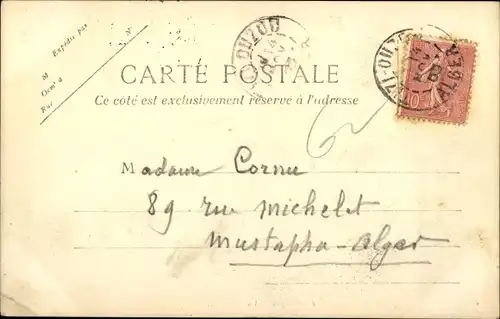 Expédié par
M
Dem't à
Rue
N°
CARTE POSTALE
Ce côté est exclusivement réservé à l'adresse
TIZI-OUZOU
ALGER
10
Madame Cornu
89 rue Michelet
Mustapha-Alger